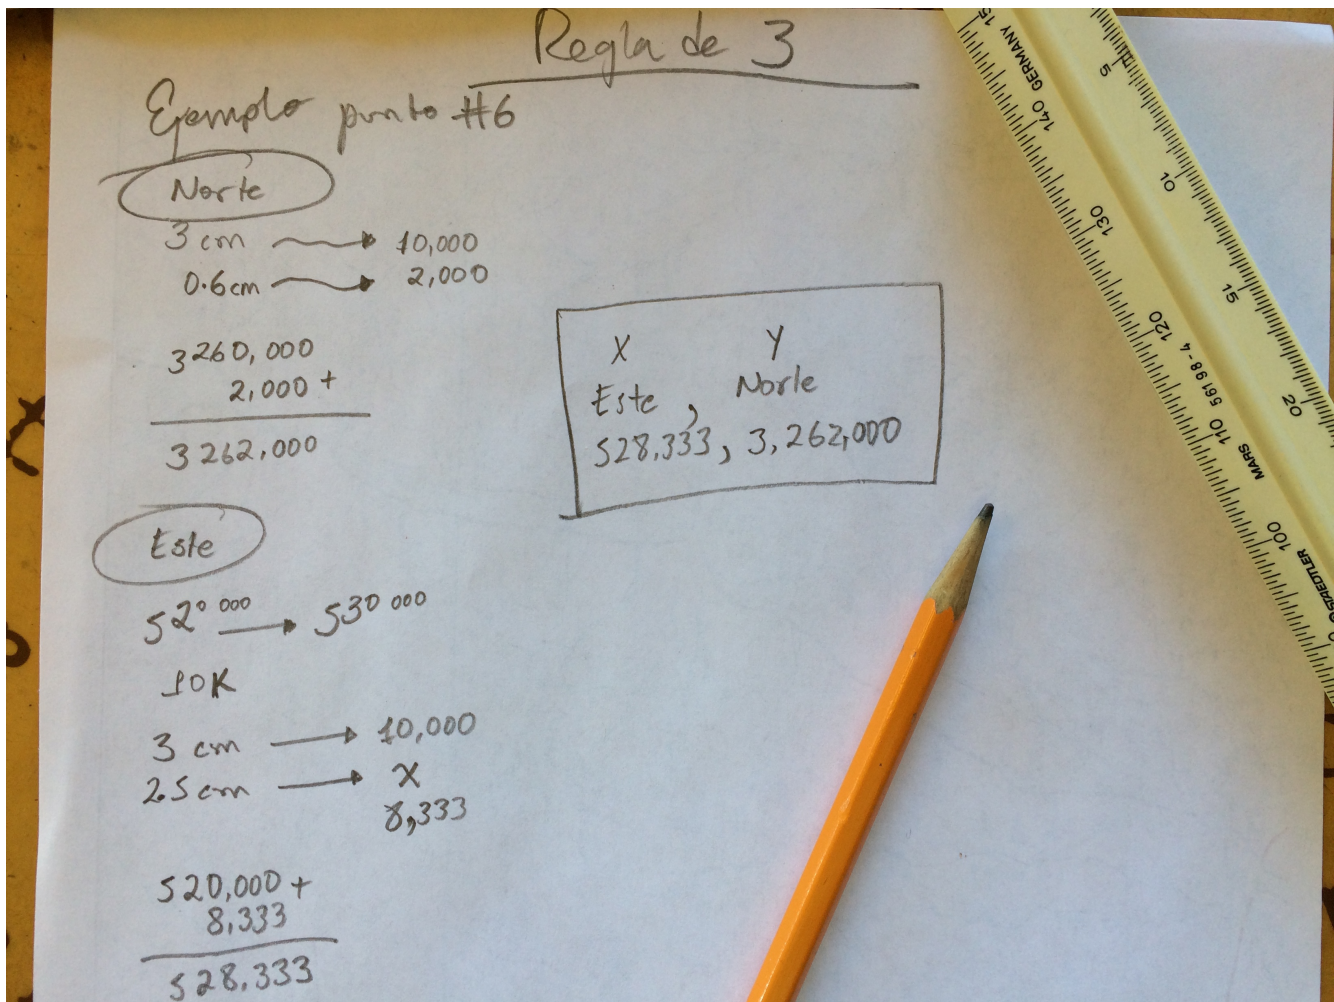 Regla de 3
Ejemplo punto #6
Norte
3 cm → 10,000
0.6cm → 2,000
3260,000
2,000 +
3262,000
X Y
Este, Norte
528,333, 3,262,000
Este
520 000 → 530 000
10K
3 cm → 10,000
2.5 cm → X
8,333
520,000 +
8,333
528,333
15 GERMANY 140 130 120 56198-4 110 MARS 100 STAEDTLER
5 10 15 20